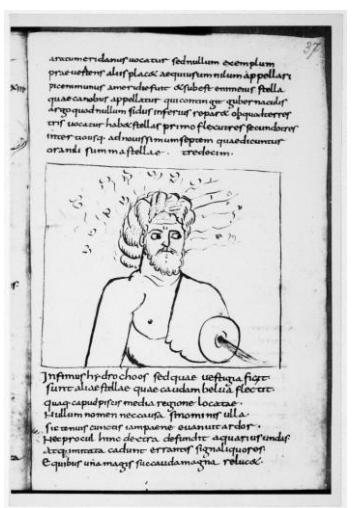 37
aratumeridanus uocatur sed nullum exemplum
aliis plac& nilum appellari
a meridie & subest enim eius stella
quae canobus appellatur qui contingit gubernaculis
argo quod nullum sidus inferius obquod terres
tris uocatur hab& stellas primo flecxures secundo tres
inter adnouissimum septem quae dicuntur
orandi summa stellae . tredecim.
Infimus hydrochoos sed quae uestigia figit
sunt aliae stellae quae caudam belua flectit
quaq. caput piscis media regione locatae .
Nullum nomen nec causa nominis ulla
sic tenuis cunctis iam paene euanuit ardor .
Nec procul hinc dextra defundit aquarius undis
Atq. imitata cadunt errantis signa liquoris
E quibus una magis cauda magna reluc& .